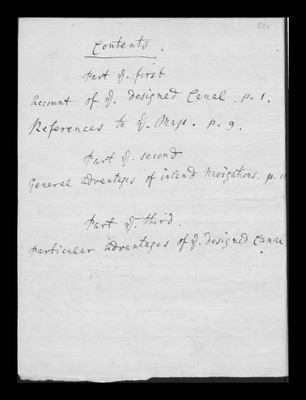 Contents.
Part ye. first
Account of ye. designed Canal. p. 1.
References to ye. Map. p. 9.
Part ye. second
General advantages of inland Navigations. p. 11
Part ye. third.
Particular advantages of ye. designed Canal